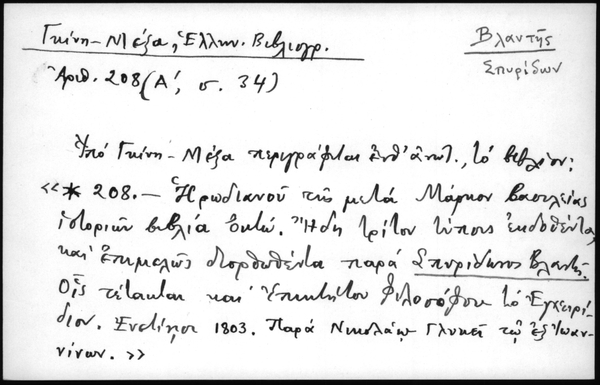 Γκίνη-Μέξα, Ἑλλην. Βιβλιογρ.
Βλαντῆς
Σπυρίδων
Ἀριθ. 208 (Α', σ. 34)
Ὑπό Γκίνη-Μέξα περιγράφεται ἐνθ' ἀνωτ., τό βιβλίον:
«* 208.— Ἡρωδιανοῦ τῆς μετά Μάρκον βασιλείας
ἱστοριῶν βιβλία ὀκτώ. Ἤδη τρίτον τύποις ἐκδοθέντα,
καί ἐπιμελῶς διορθωθέντα παρά Σπυρίδωνος Βλαντῆ.
Οἷς τέτακται καί Ἐπικτήτου φιλοσόφου τό Ἐγχειρί-
διον. Ἐνετίησι 1803. Παρά Νικολάῳ Γλυκεῖ τῷ ἐξ Ἰωαν-
νίνων.»